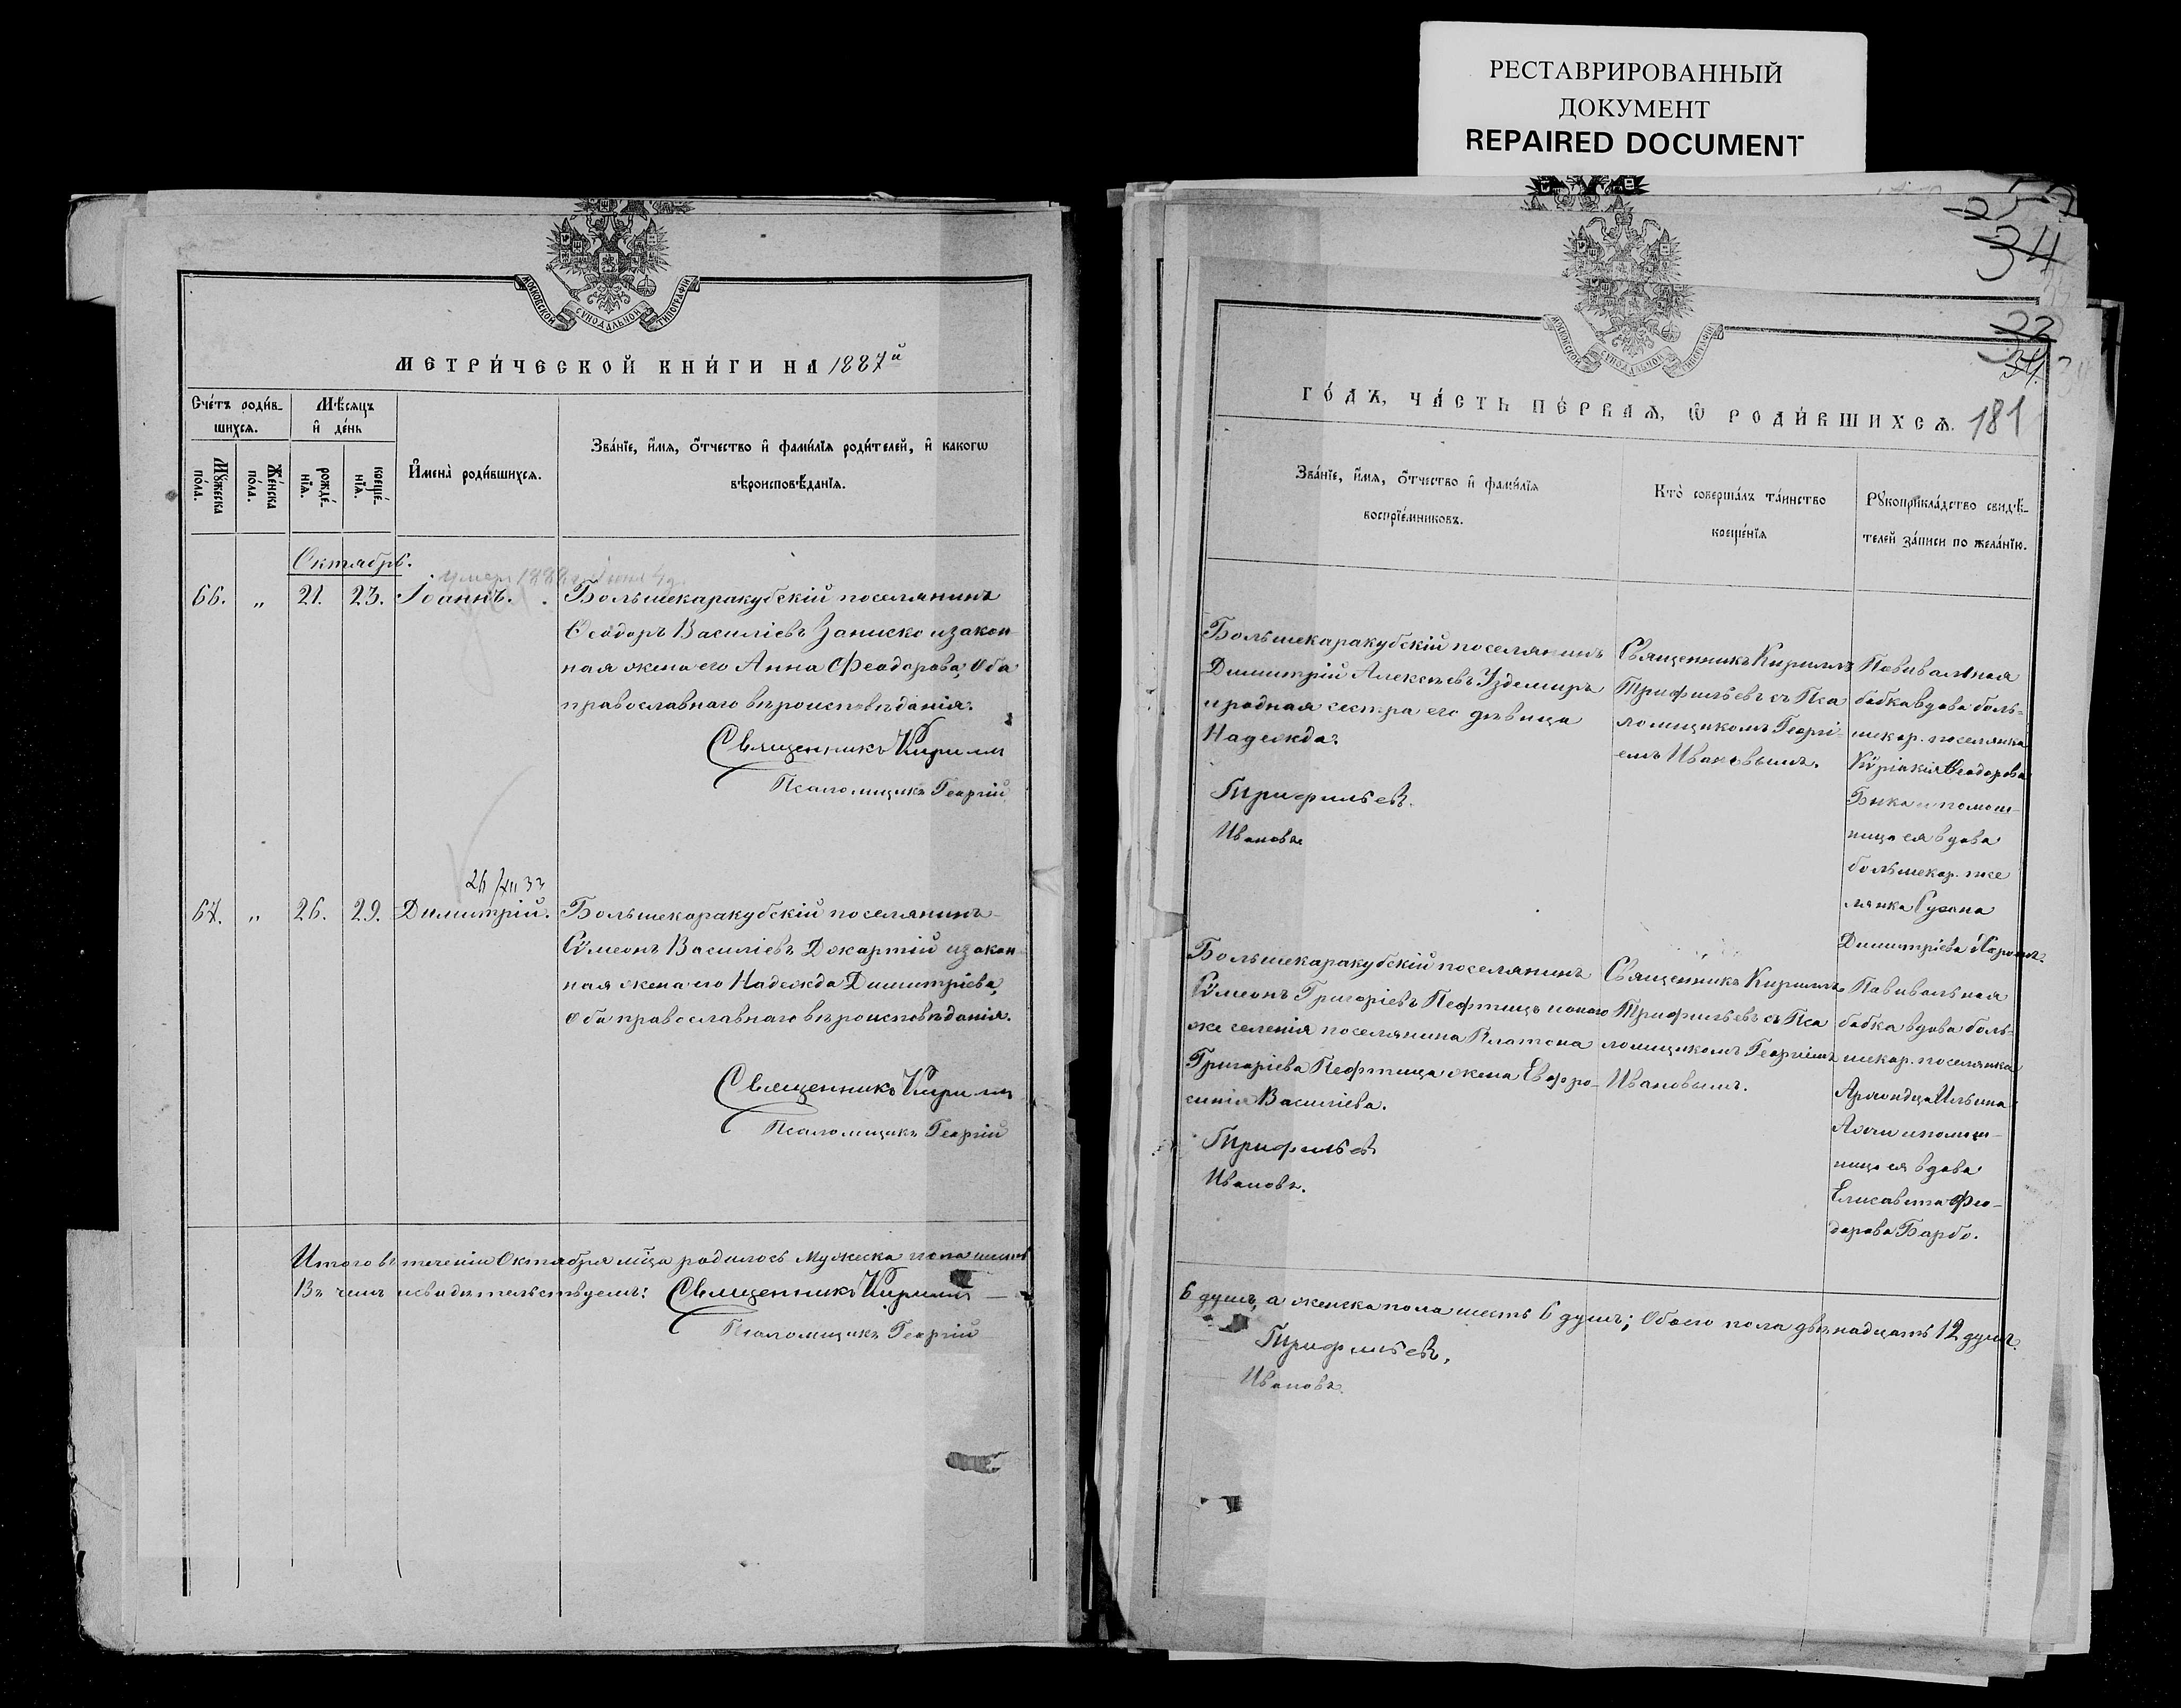 РЕСТАВРИРОВАННЫЙ
ДОКУМЕНТ
REPAIRED DOCUMENT
МОСКОВСКОЙ СУНОДАЛЬНОЙ ТИПОГРАФІИ
МЕТРИ́ЧЕСКОЙ КНИ́ГИ НА 1887й
Сче́тъ роди́в-
шихся.
Мѣсяцъ
и҆ де́нь
Мꙋжеска
по́ла.
Же́нска
по́ла.
рожде́-
нїѧ.
креще́-
нїѧ.
И҆мена̀ роди́вшихся.
Зва́нїе, и҆́мя, ѻ҆́тчество и҆ фами́лїя роди́телей, и҆ какогѡ
вѣроисповѣ́данїя.
Октябрь.
умер 1888
66. „ 21. 23. Іоаннъ.
Большекаракубскій поселянинъ
Ѳеодоръ Василіевъ и закон-
ная жена его Анна Феодорова, Оба
православнаго вѣроисповѣданія.
Священникъ Кириллъ
Псаломщикъ Георгій
26/XII 33
67. „ 26. 29. Димитрій.
Большекаракубскій поселянинъ
Сѵмеонъ Василіевъ Джартій и закон-
ная жена его Надежда Димитріева,
Оба православнаго вѣроисповѣданія.
Священникъ Кириллъ
Псаломщикъ Георгій
Итого въ теченіи Октября мѣсца родилось Мужеска пола шесть
Въ чемъ и свидѣтельствуемъ: Священникъ Кириллъ
Псаломщикъ Георгій
34
32
34
181
МОСКОВСКОЙ СУНОДАЛЬНОЙ ТИПОГРАФІИ
ГО́ДЪ, ЧА́СТЬ ПЕ́РВАЯ, Ѡ҆ РОДИ́ВШИХСЯ.
Зва́нїе, и҆́мя, ѻ҆́тчество и҆ фами́лїя
воспрїе́мниковъ.
Кто̀ соверша́лъ та́инство
креще́нїя
Рꙋкоприкла́дство свидѣ́-
телей за́писи по жела́нїю.
Большекаракубскій поселянинъ
Димитрій Алексѣевъ Уздемиръ
и родная сестра его дѣвица
Надежда.
Трифильевъ.
Ивановъ
Священникъ Кириллъ
Трифильевъ съ Пса
ломщикомъ Георгі-
емъ Ивановымъ.
Повивальная
бабка вдова боль-
шекар. поселянка
Кѵріакія Ѳеодорова
Бика и помощ-
ница ея вдова
большекар. посе
лянка Сусана
Димитріева
Большекаракубскій поселянинъ
Сѵмеонъ Григоріевъ Пефтицъ и онаго
же селенія поселянина Платона
Григоріева Пефтица жена Евфро-
синія Василіева.
Трифильевъ
Ивановъ.
Священникъ Кириллъ
Трифильевъ съ Пса
ломщикомъ Георгіемъ
Ивановымъ.
Повивальная
бабка вдова боль-
шекар. поселянка
Ильина
и помощ-
ница ея вдова
Елисавета Фео-
дорова Барбо.
6 душъ, а женска пола шесть 6 душъ; Обоего пола двѣнадцать 12 душъ.
Трифильевъ,
Ивановъ.